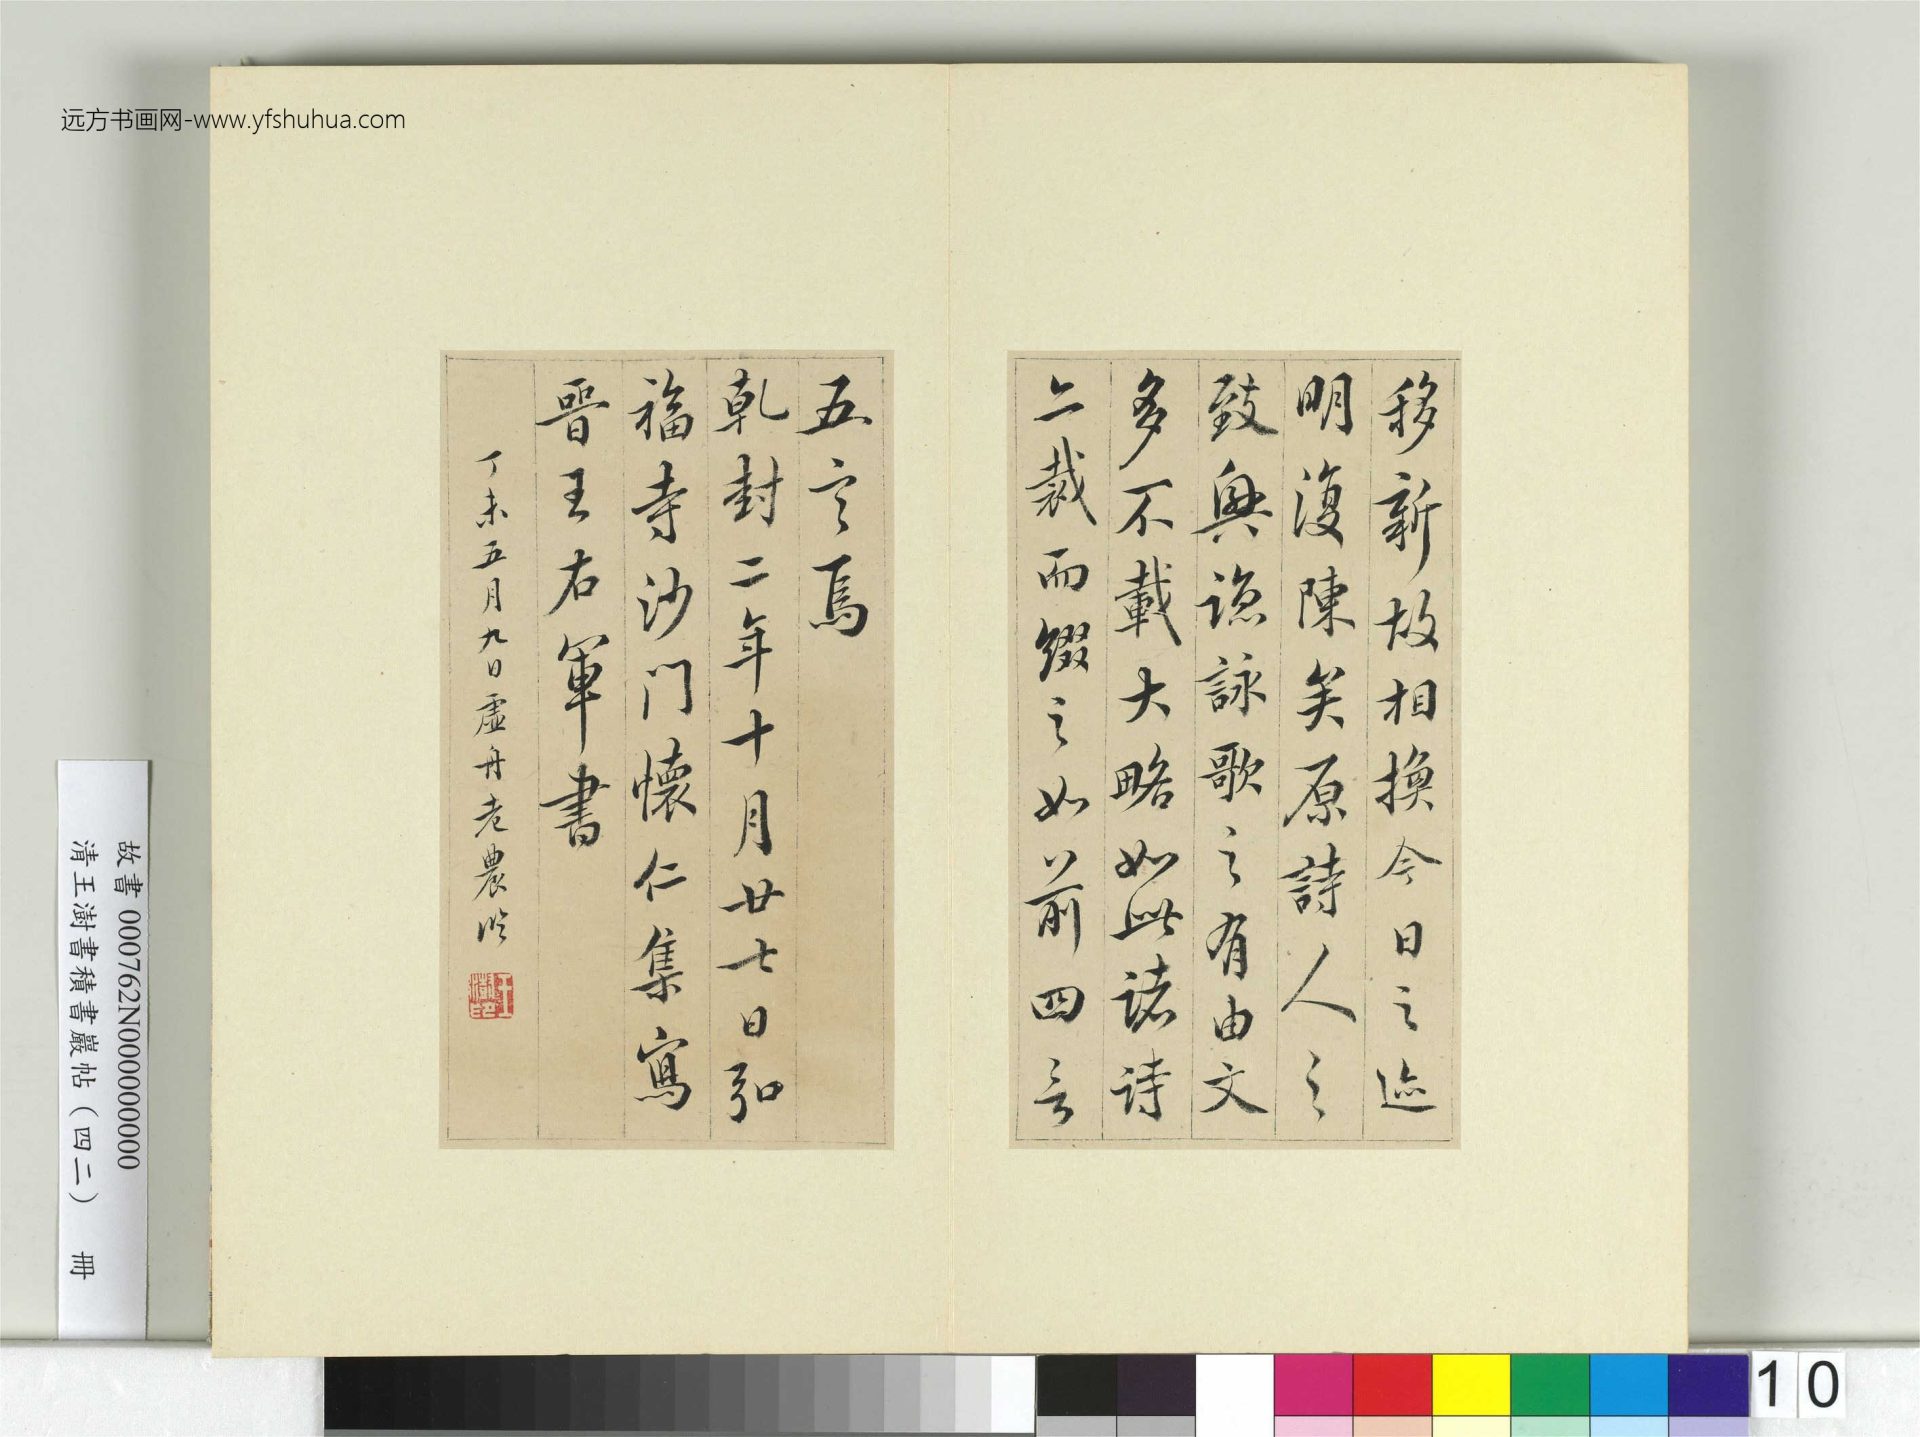 远方书画网-www.yfshuhua.com
移新故相换今日之迹
明復陳矣原詩人之
致興諒詠歌之有由文
多不載大略如此諸詩
亦裁而綴之如前四言
五言焉
乾封二年十月廿七日弘
福寺沙门懷仁集寫
晋王右軍書
丁未五月九日虚舟老農临
王澍印
故書 000762N000000000
清王澍書積書巖帖(四二) 冊
10